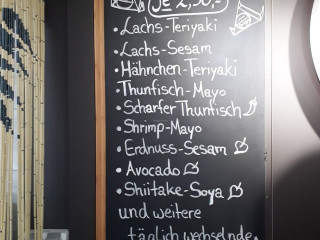 Je 2,50,-
• Lachs-Teriyaki
• Lachs-Sesam
• Hähnchen-Teriyaki
• Thunfisch-Mayo
• Scharfer Thunfisch
• Shrimp-Mayo
• Erdnuss-Sesam
• Avocado
• Shiitake-Soya
und weitere
täglich wechselnde